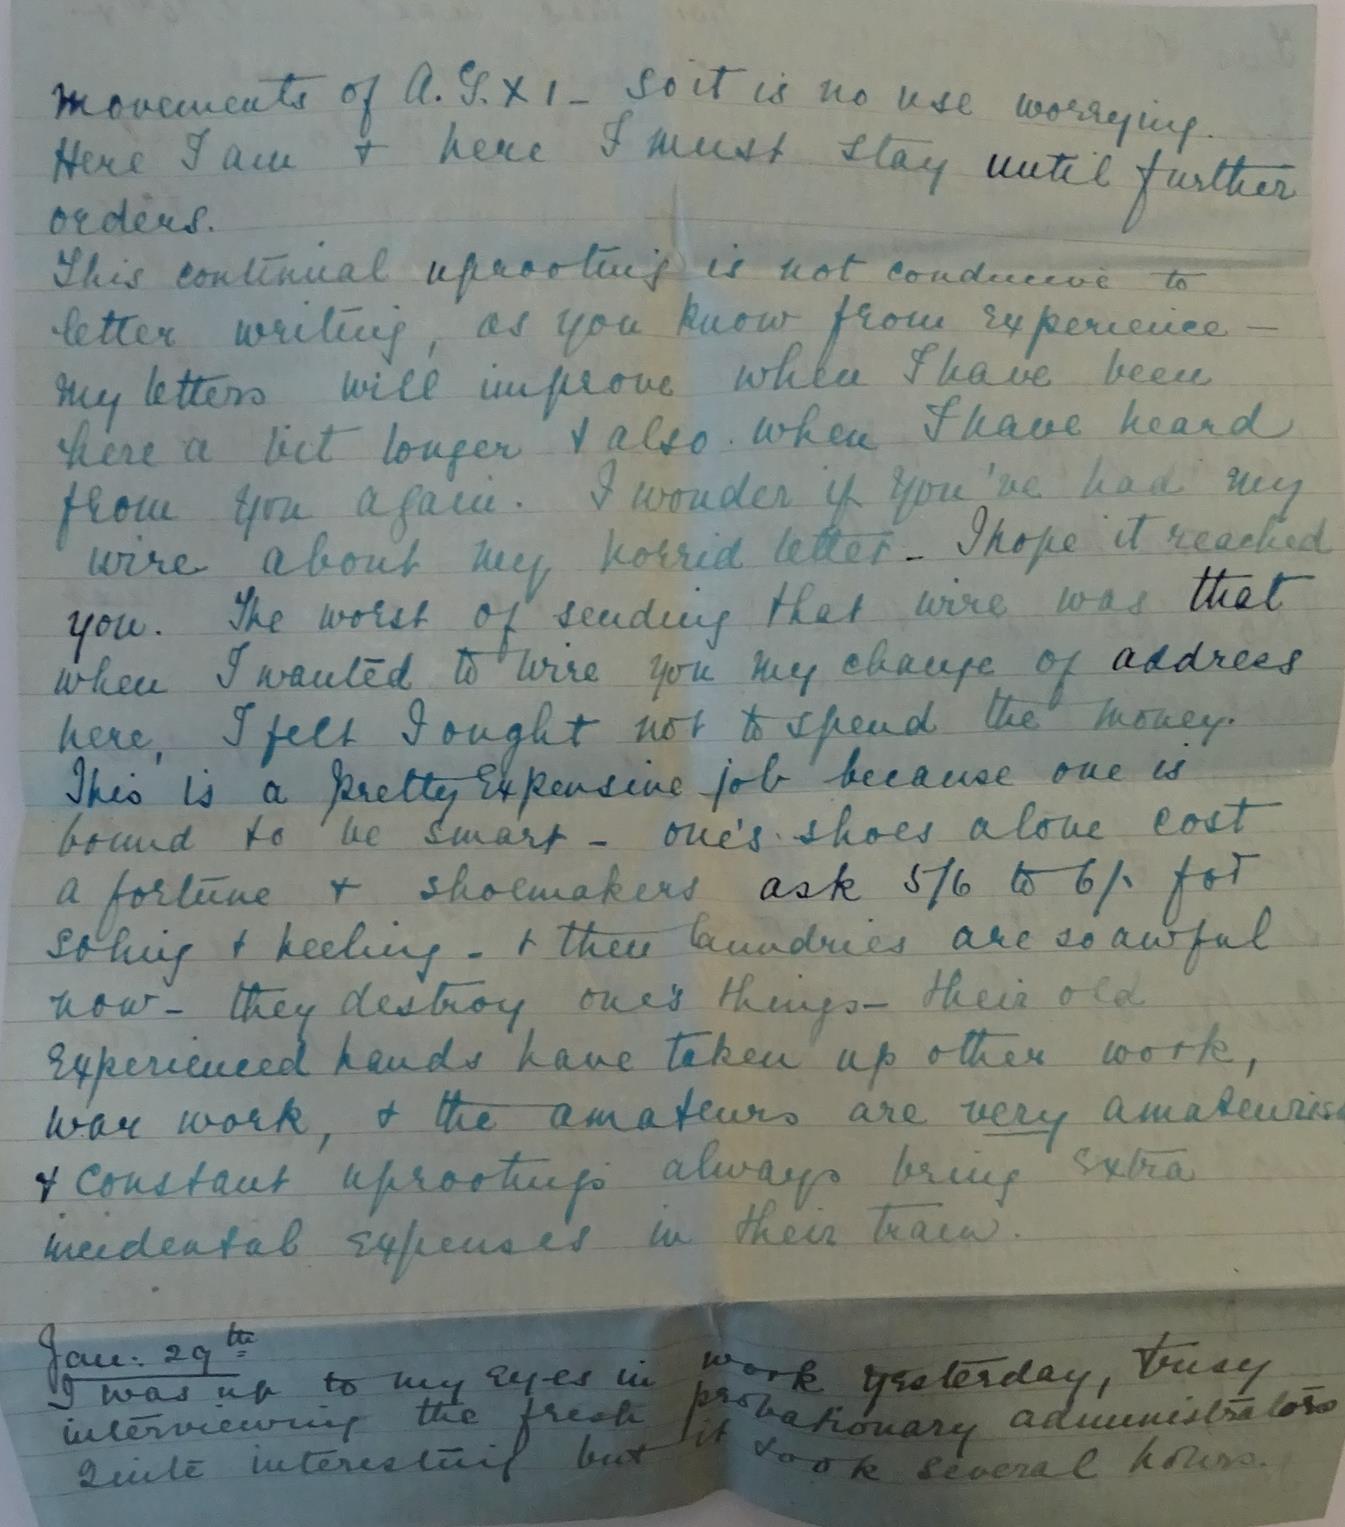 movements of A.G.X1 - so it is no use worrying.
Here I am + here I must stay until further
orders.
This continual uprooting is not conducive to
letter writing, as you know from experience -
my letters will improve when I have been
here a bit longer + also when I have heard
from you again. I wonder if you've had my
wire about my horrid letter - I hope it reached
you. The worst of sending that wire was that
when I wanted to wire you my change of address
here, I felt I ought not to spend the money.
This is a pretty expensive job because one is
bound to be smart - one's shoes alone cost
a fortune + shoemakers ask 5/6 to 6/- for
soling + heeling - + then laundries are so awful
now - they destroy one's things - their old
experienced hands have taken up other work,
war work, + the amateurs are very amateurish
+ constant uprootings always bring extra
incidental expenses in their train.
Jan: 29th
I was up to my eyes in work yesterday, busy
interviewing the fresh probationary administrators
Quite interesting but it took several hours.